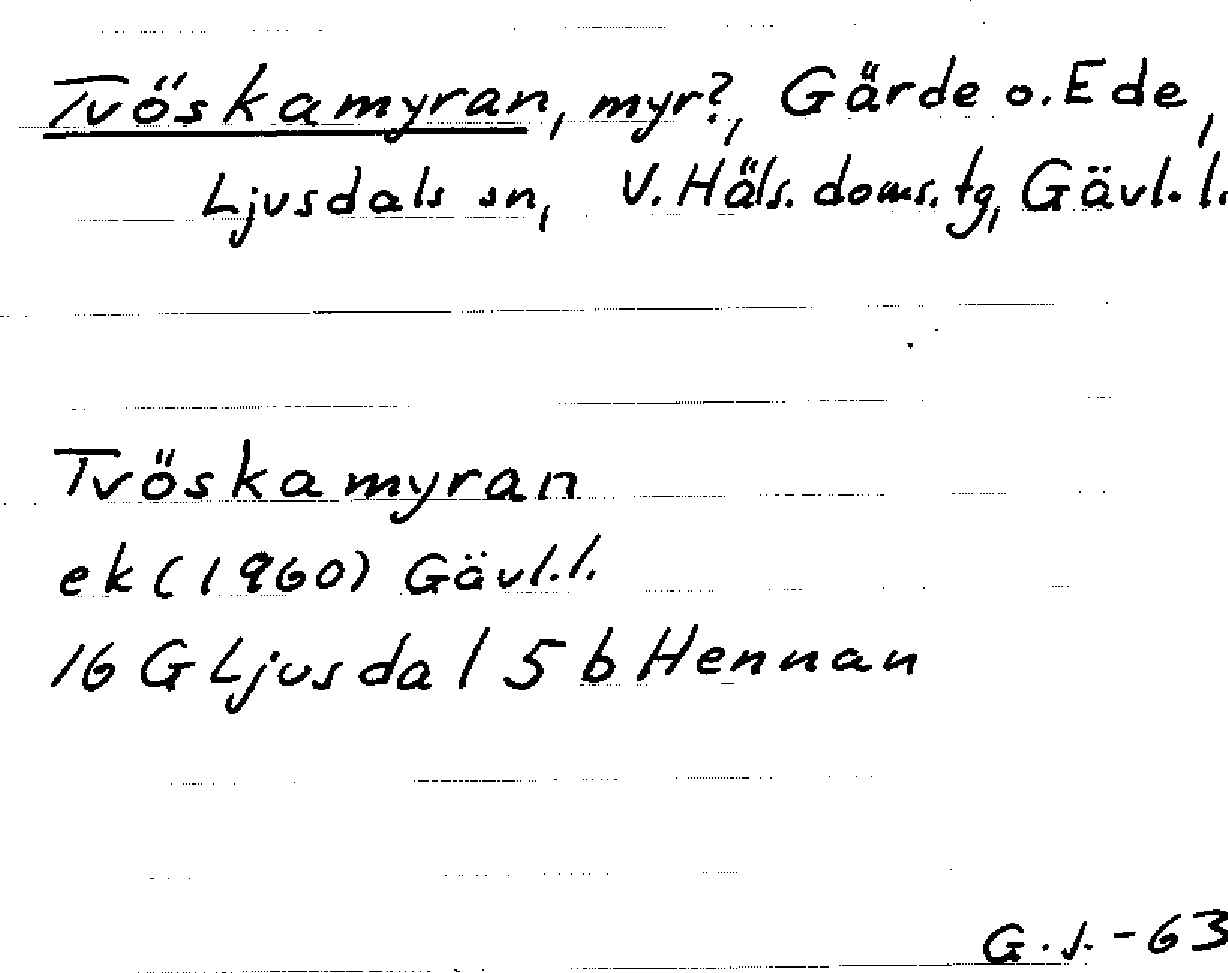 Tvöskamyran, myr?, Gärde o. Ede,
Ljusdals sn, V. Häls. doms. tg, Gävl. l.
Tvöskamyran
ek (1960) Gävl. l.
16 G Ljusdal 5 b Hennan
G. J. - 63